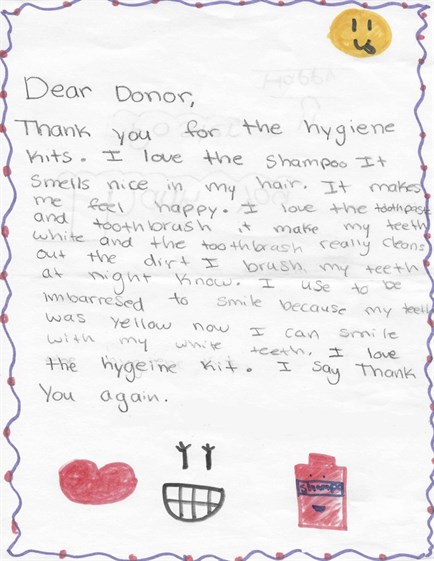 Dear Donor,
Thank you for the hygiene
kits. I love the shampoo It
smells nice in my hair. It makes
me feel happy. I love the toothpaste
and toothbrush it make my teeth
white and the toothbrush really cleans
out the dirt I brush my teeth
at night know. I use to be
imbarresed to smile because my teeth
was yellow now I can smile
with my white teeth. I love
the hygeine kit. I say Thank
You again.